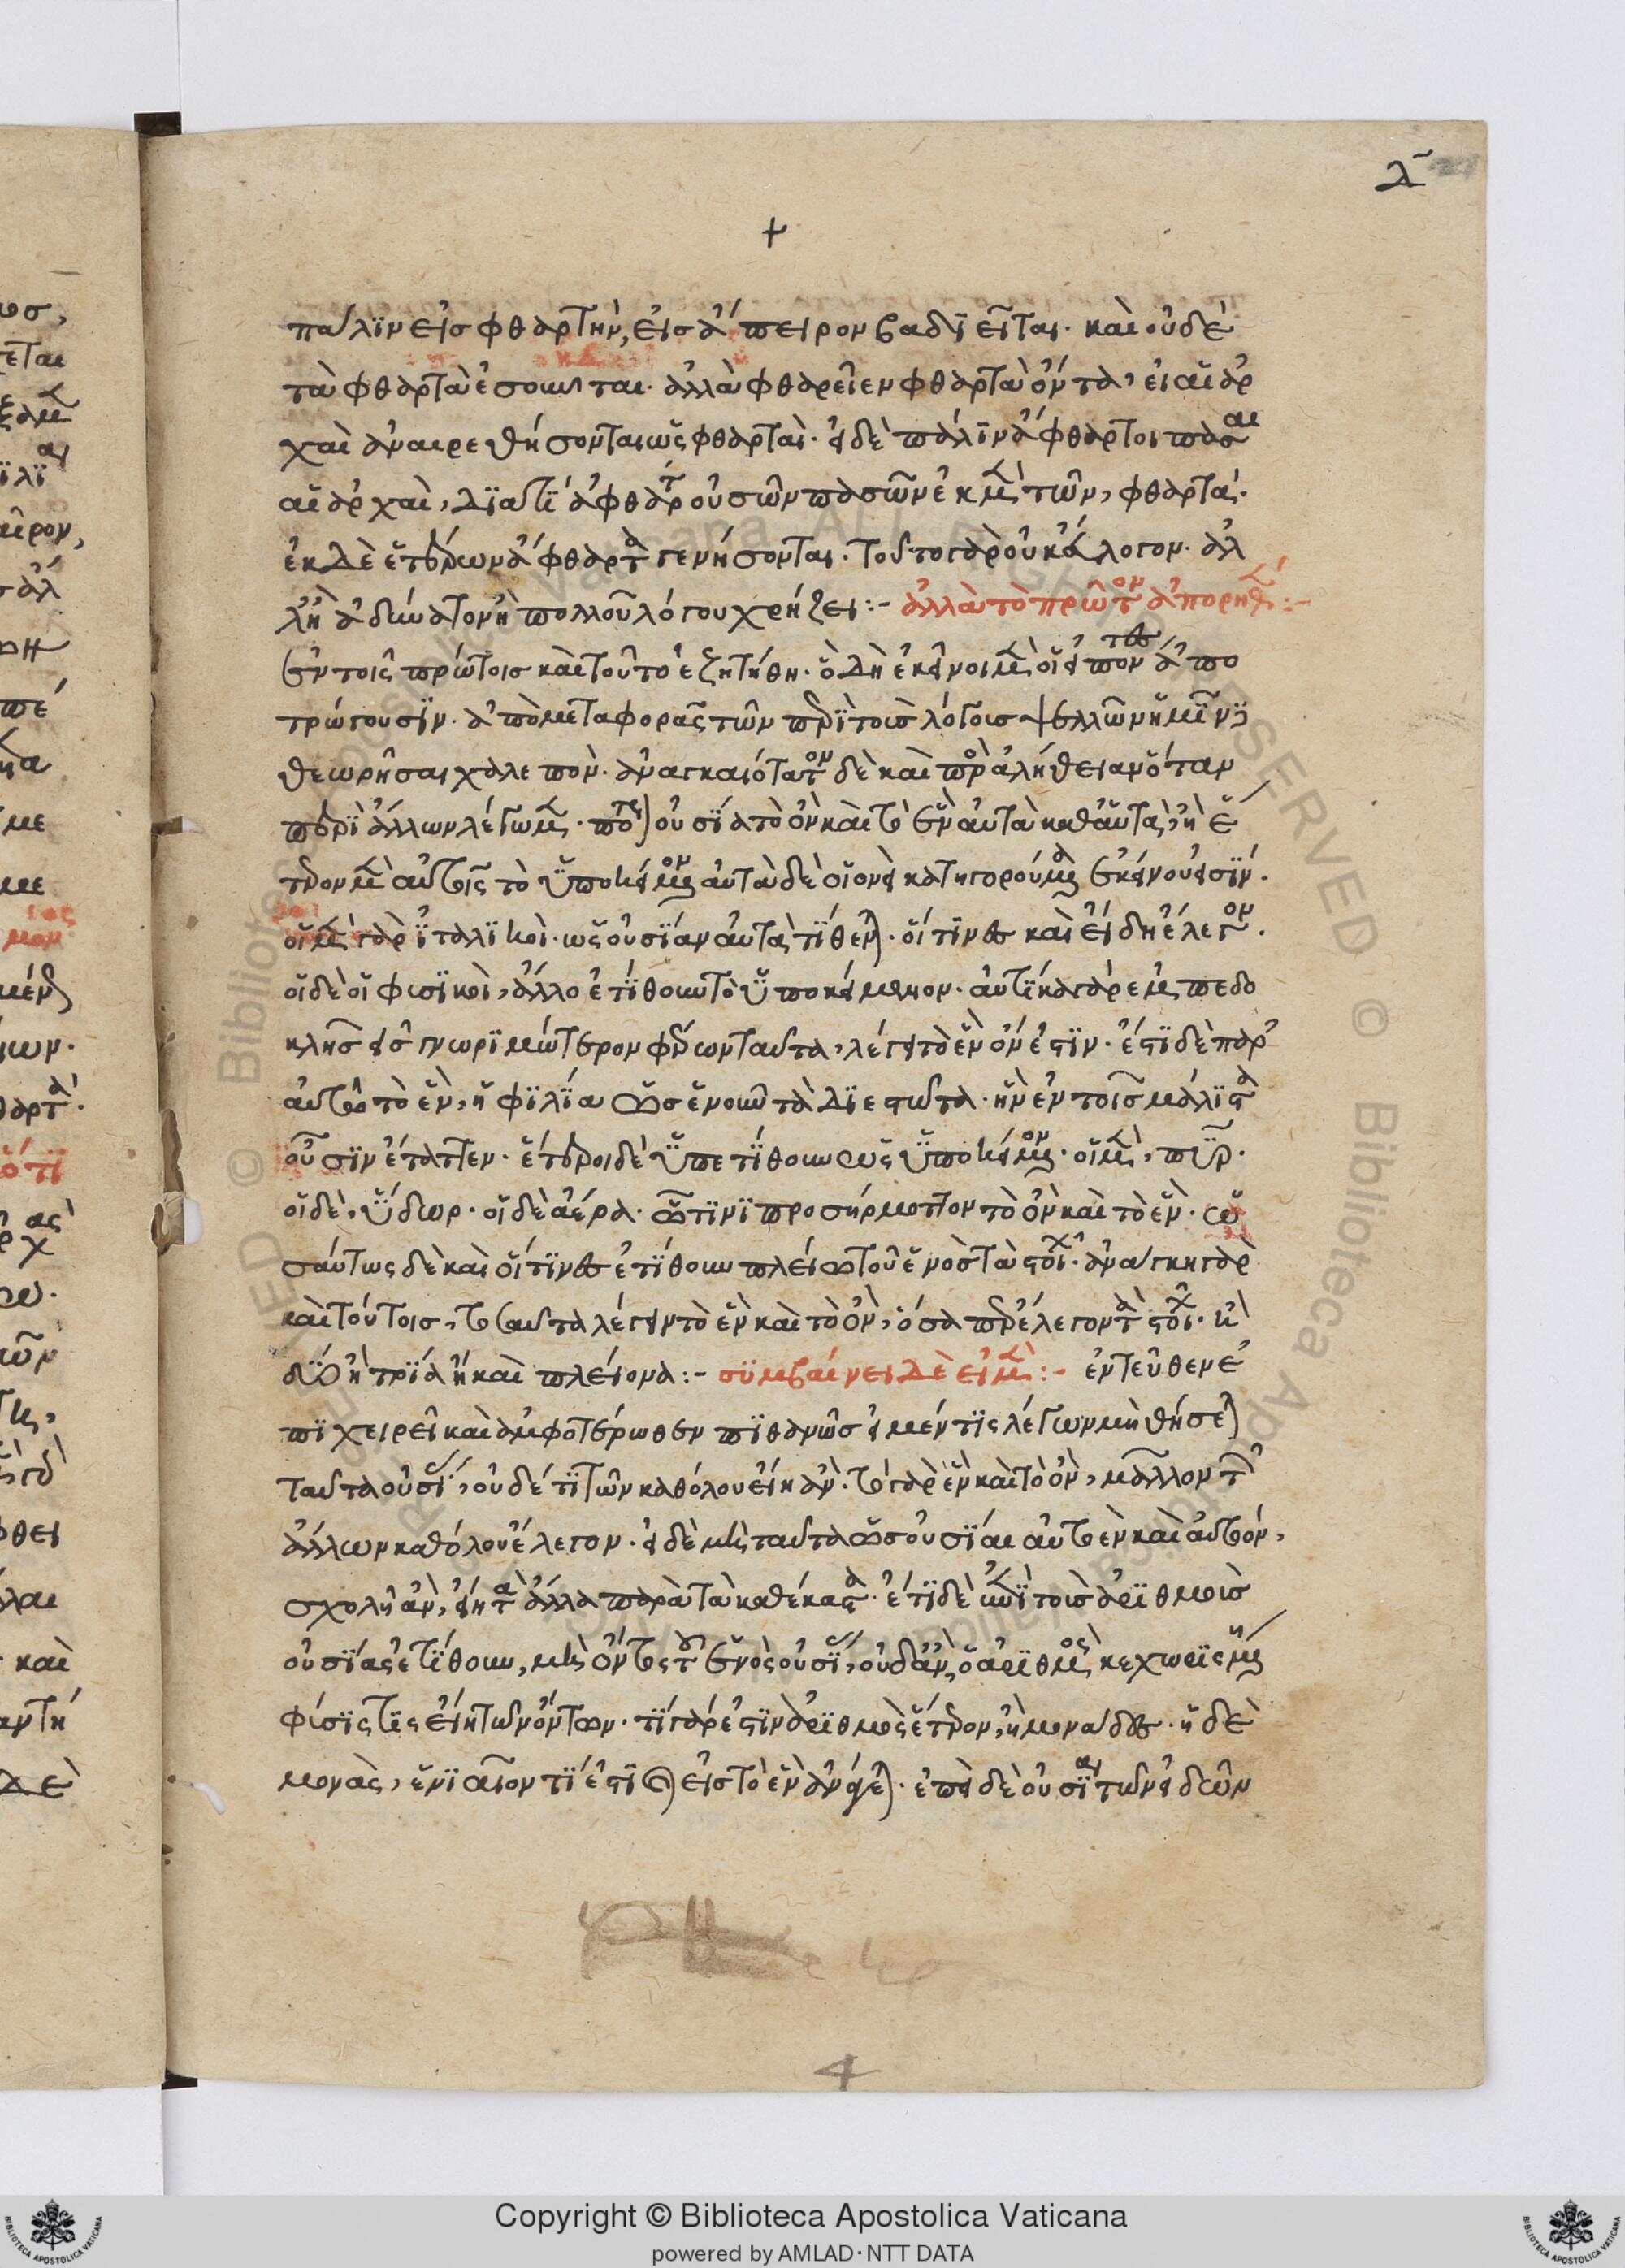 λ
+
πάλιν εἰς φθαρτὴν, εἰς ἄπειρον βαδιεῖται. καὶ οὐδὲ
τὰ φθαρτὰ ἔσονται. ἀλλὰ φθαρείη ἐν φθαρτὰ ὄντα, εἰ αἱ ἀρ
χαὶ ἀναιρεθήσονται ὡς φθαρταὶ. εἰ δὲ πάλιν ἄφθαρτοι πᾶσαι
αἱ ἀρχαὶ, διατί ἀφθάρτ οὐσῶν πασῶν ἐκ μὲν τῶν, φθαρτά.
ἐκ δὲ ἑτέρων ἄφθαρτα γενήσονται. τοῦτο γὰρ οὐκ ἄλογον. ἀλ
λ' ἢ ἀδύνατον ἢ πολλοῦ λόγου χρήζει:- ἀλλὰ τὸ πρῶτον ἀπορηθὲν:-
ἐν τοῖς πρώτοις καὶ τοῦτο ἐζητήθη. ὃ δὴ ἐκεῖνοι μὲν οἱ εἰπόντες ἀπο
τρώγουσιν. ἀπὸ μεταφορᾶς τῶν περὶ τοῖς λόγοις ἐλλῶν ἡμῖν
θεωρῆσαι χαλεπὸν. ἀναγκαιότατον δὲ καὶ πρὸς ἀλήθειαν ὅταν
περὶ ἄλλων λέγωμεν. πότε οὐσία τὸ ὂν καὶ τὸ ἓν αὐτὰ καθ' αὑτὰ, ἢ ἕ
τερον μὲν αὐτοῖς τὸ ὑποκείμενον αὐτὰ δὲ οἱονεὶ κατηγορούμενα ἐκείνου εἰσίν.
οἱ μὲν γὰρ ἰταλικοὶ. ὡς οὐσίαν αὐτὰ τίθενται. οἵτινες καὶ εἴδη ἔλεγον.
οἱ δὲ οἱ φυσικοὶ, ἄλλο ἐτίθουν τὸ ὑποκείμενον. αὐτίκα γὰρ ἐμπεδο
κλῆς εἰς γνωριμώτερον φέρων ταῦτα, λέγει τὸ ἓν ὄν ἐστιν. ἔστι δὲ παρ'
αὐτῷ τὸ ἓν, ἡ φιλία ὡς ἑνοῦν τὰ διεστῶτα. ἣν ἐν τοῖς μάλιστα
οὖσιν ἔταττεν. ἕτεροι δὲ ὑπετίθουν ὡς ὑποκείμενον. οἱ μὲν, πῦρ.
οἱ δὲ, ὕδωρ. οἱ δὲ ἀέρα. ᾧτινι προσήρμοττον τὸ ὂν καὶ τὸ ἓν. ὡ
σαύτως δὲ καὶ οἵτινες ἐτίθουν πλείω τοῦ ἑνὸς τὰ στοιχ. ἀνάγκη γὰρ
καὶ τούτοις, τὸ ταῦτα λέγειν τὸ ἓν καὶ τὸ ὂν, ὅσα περ ἔλεγον τὰ στοιχ. εἰ
δύο ἢ τρία ἢ καὶ πλείονα:- συμβαίνει δὲ εἰ μὲν:- ἐντεῦθεν ἐ
πιχειρεῖ καὶ ἀμφοτέρωθεν πιθανῶς εἰ μέν τις λέγων μὴ θήσεται
ταῦτα οὐσί, οὐδέ τι τῶν καθόλου εἴη ἀν. τὸ γὰρ ἓν καὶ τὸ ὂν, μᾶλλον τῶν
ἄλλων καθόλου ἔλεγον. εἰ δὲ μὴ ταῦτα ὡς οὐσίαι αὐτοὲν καὶ αὐτοόν,
σχολῇ ἂν, εἴη τὰ ἄλλα παρὰ τὰ καθέκαστα. ἔτι δὲ μὲν τοῖς ἀριθμοῖς
οὐσίας ἐτίθουν, μὴ ὄντος τοῦ ἑνὸς οὐσί, οὐδ' ἂν ὁ ἀριθμὸς κεχωρισμένη
φύσις τις εἴη τῶν ὄντων. τί γάρ ἐστιν ἀριθμὸς ἕτερον, ἢ μονάδες. ἡ δὲ
μονὰς, ἑνιαῖον τί ἐστι εἰς τὸ ἓν ἀνάγεται. ἐπεὶ δὲ οὐσίαι τῶν εἰδῶν
4
Copyright © Biblioteca Apostolica Vaticana
powered by AMLAD·NTT DATA